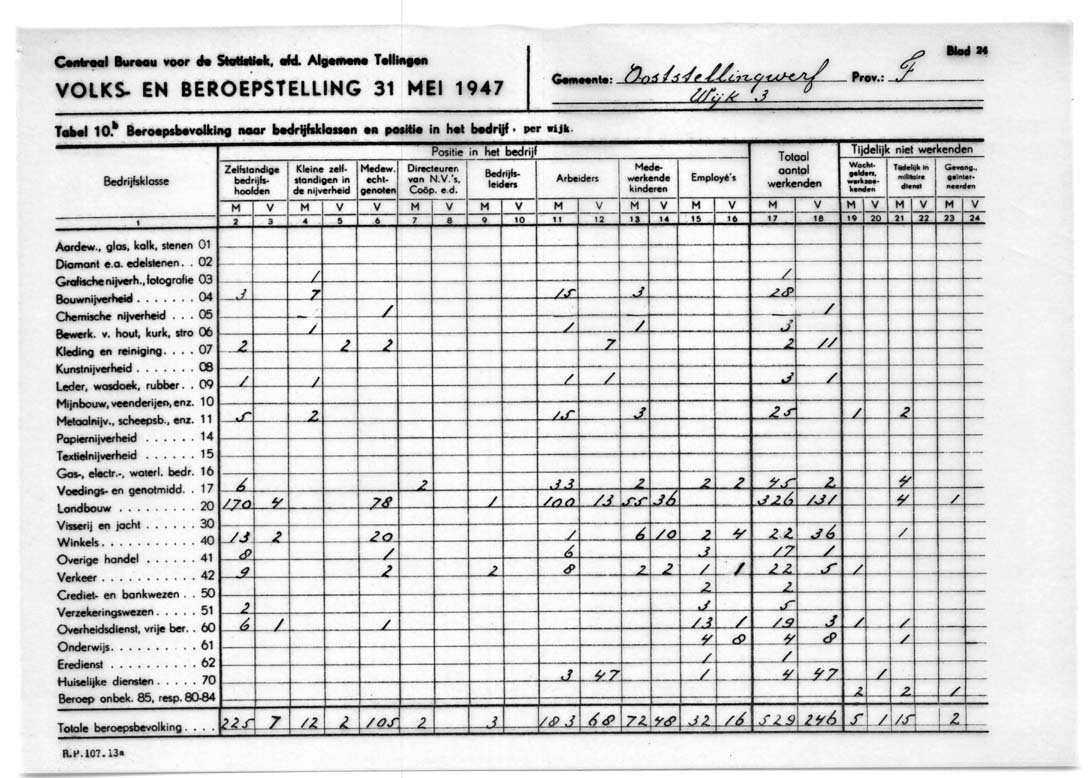 Blad 24
Centraal Bureau voor de Statistiek, afd. Algemene Tellingen
VOLKS- EN BEROEPSTELLING 31 MEI 1947
Gemeente: Ooststellingwerf Prov.: F
Wijk 3
Tabel 10.b Beroepsbevolking naar bedrijfsklassen en positie in het bedrijf, per wijk.
Bedrijfsklasse
Positie in het bedrijf
Totaal aantal werkenden
Tijdelijk niet werkenden
Zelfstandige bedrijfshoofden
Kleine zelfstandigen in de nijverheid
Medew. echtgenoten
Directeuren van N.V.'s, Coöp. e.d.
Bedrijfsleiders
Arbeiders
Medewerkende kinderen
Employé's
Wachtgelders, werkzoekenden
Tijdelijk in militaire dienst
Gevang., geïnterneerden
M V M V V M V M V M V M V M V M V M V M V M V
1 2 3 4 5 6 7 8 9 10 11 12 13 14 15 16 17 18 19 20 21 22 23 24
Aardew., glas, kalk, stenen 01
Diamant e.a. edelstenen . . 02
Grafische nijverh., fotografie 03 1 1
Bouwnijverheid . . . . . . . 04 3 7 15 3 28
Chemische nijverheid . . . 05 1 1
Bewerk. v. hout, kurk, stro 06 1 1 1 3
Kleding en reiniging . . . . 07 2 2 2 7 2 11
Kunstnijverheid . . . . . . . 08
Leder, wasdoek, rubber . . 09 1 1 1 1 3 1
Mijnbouw, veenderijen, enz. 10
Metaalnijv., scheepsb., enz. 11 5 2 15 3 25 1 2
Papiernijverheid . . . . . . 14
Textielnijverheid . . . . . . 15
Gas-, electr.-, waterl. bedr. 16
Voedings- en genotmidd. . 17 6 2 33 2 2 2 45 2 4
Landbouw . . . . . . . . . 20 170 4 78 1 100 13 55 36 326 131 4 1
Visserij en jacht . . . . . . 30
Winkels . . . . . . . . . . 40 13 2 20 1 6 10 2 4 22 36 1
Overige handel . . . . . . 41 8 1 6 3 17 1
Verkeer . . . . . . . . . . 42 9 2 2 8 2 2 1 1 22 5 1
Crediet- en bankwezen . . 50 2 2
Verzekeringswezen . . . . . 51 2 3 5
Overheidsdienst, vrije ber. . 60 6 1 1 13 1 19 3 1 1
Onderwijs . . . . . . . . . 61 4 8 4 8 1
Eredienst . . . . . . . . . 62 1 1
Huiselijke diensten . . . . . 70 3 47 1 4 47 1
Beroep onbek. 85, resp. 80-84 2 2 1
Totale beroepsbevolking . . . . 225 7 12 2 105 2 3 183 68 72 48 32 16 529 246 5 1 15 2
R.P.107.13a